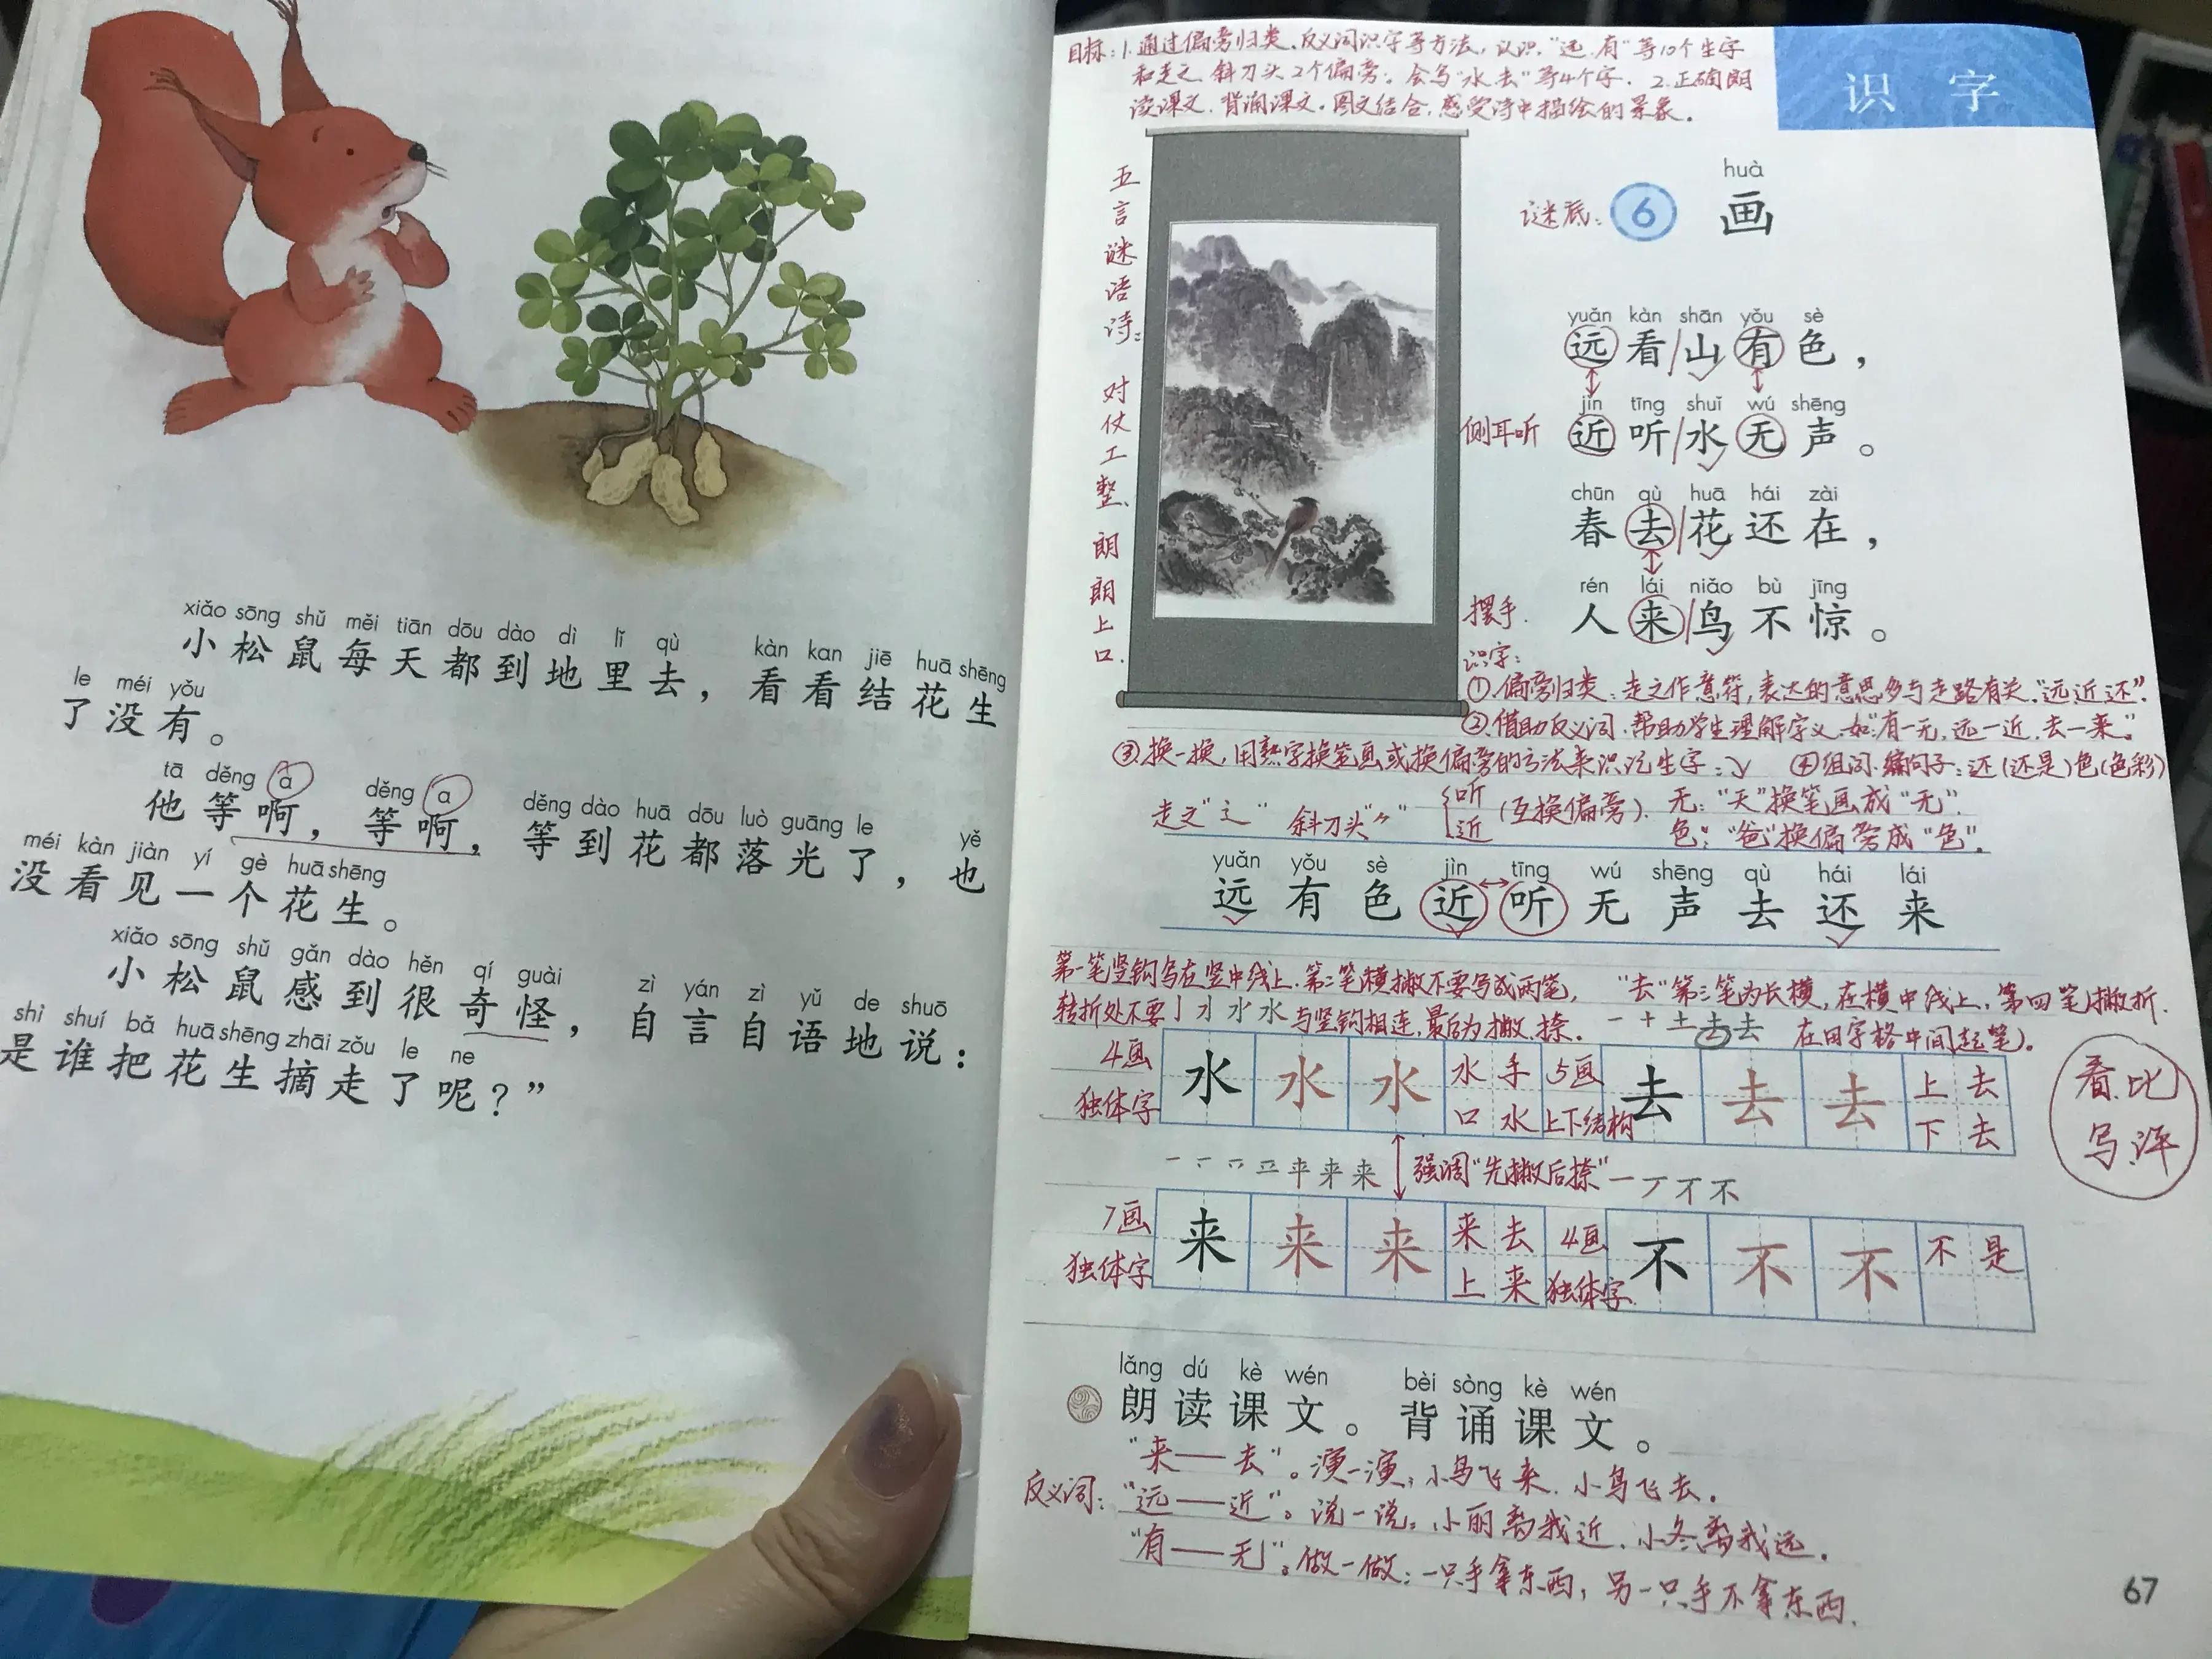 xiǎo sōng shǔ měi tiān dōu dào dì lǐ qù kàn kan jiē huā shēng
小松鼠每天都到地里去，看看结花生
le méi yǒu
了没有。
tā děng a děng a děng dào huā dōu luò guāng le yě
他等啊，等啊，等到花都落光了，也
méi kàn jiàn yí gè huā shēng
没看见一个花生。
xiǎo sōng shǔ gǎn dào hěn qí guài zì yán zì yǔ de shuō
小松鼠感到很奇怪，自言自语地说：
shì shuí bǎ huā shēng zhāi zǒu le ne
是谁把花生摘走了呢？”
目标：1.通过偏旁归类、反义词识字等方法，认识“远、有”等10个生字
和走之、斜刀头2个偏旁。会写“水、去”等4个字. 2.正确朗
读课文.背诵课文.图文结合,感受诗中描绘的景象.
识字
五言谜语诗: 对仗工整、朗朗上口.
huà
谜底: 6 画
yuǎn kàn shān yǒu sè
远看/山有色，
jìn tīng shuǐ wú shēng
侧耳听 近听/水无声。
chūn qù huā hái zài
春去/花还在，
rén lái niǎo bù jīng
摆手. 人来/鸟不惊。
识字:
①.偏旁归类:走之作意符,表达的意思多与走路有关.“远近还”.
②.借助反义词.帮助学生理解字义.如:“有—无,远—近,去—来.”
③.换一换,用熟字换笔画或换偏旁的方法来识记生字: ④组词.编句子:还(还是)色(色彩)
走之“辶” 斜刀头“⺈” {听 近 (互换偏旁).
无:“天”换笔画成“无”.
色:“爸”换偏旁成“色”.
yuǎn yǒu sè jìn tīng wú shēng qù hái lái
远 有 色 近↔听 无 声 去 还 来
第一笔竖钩写在竖中线上.第二笔横撇不要写成两笔,
转折处不要 亅 水 与竖钩相连,最后为撇、捺.
“去”第三笔为长横,在横中线上,第四笔撇折.
一 十 土 去 在田字格中间起笔).
4画 独体字 水 水 水 水手 口水
5画 上下结构 去 去 去 上去 下去
看.比
写.评
来 强调“先撇后捺” 一 丆 不 不
7画 独体字 来 来 来 来去 上来
4画 独体字. 不 不 不 不是
lǎng dú kè wén bèi sòng kè wén
朗读课文。背诵课文。
反义词:
“来——去”。演一演:小鸟飞来.小鸟飞去.
“远——近”。说一说:小丽离我近.小冬离我远.
“有——无”。做一做:一只手拿东西,另一只手不拿东西.
67